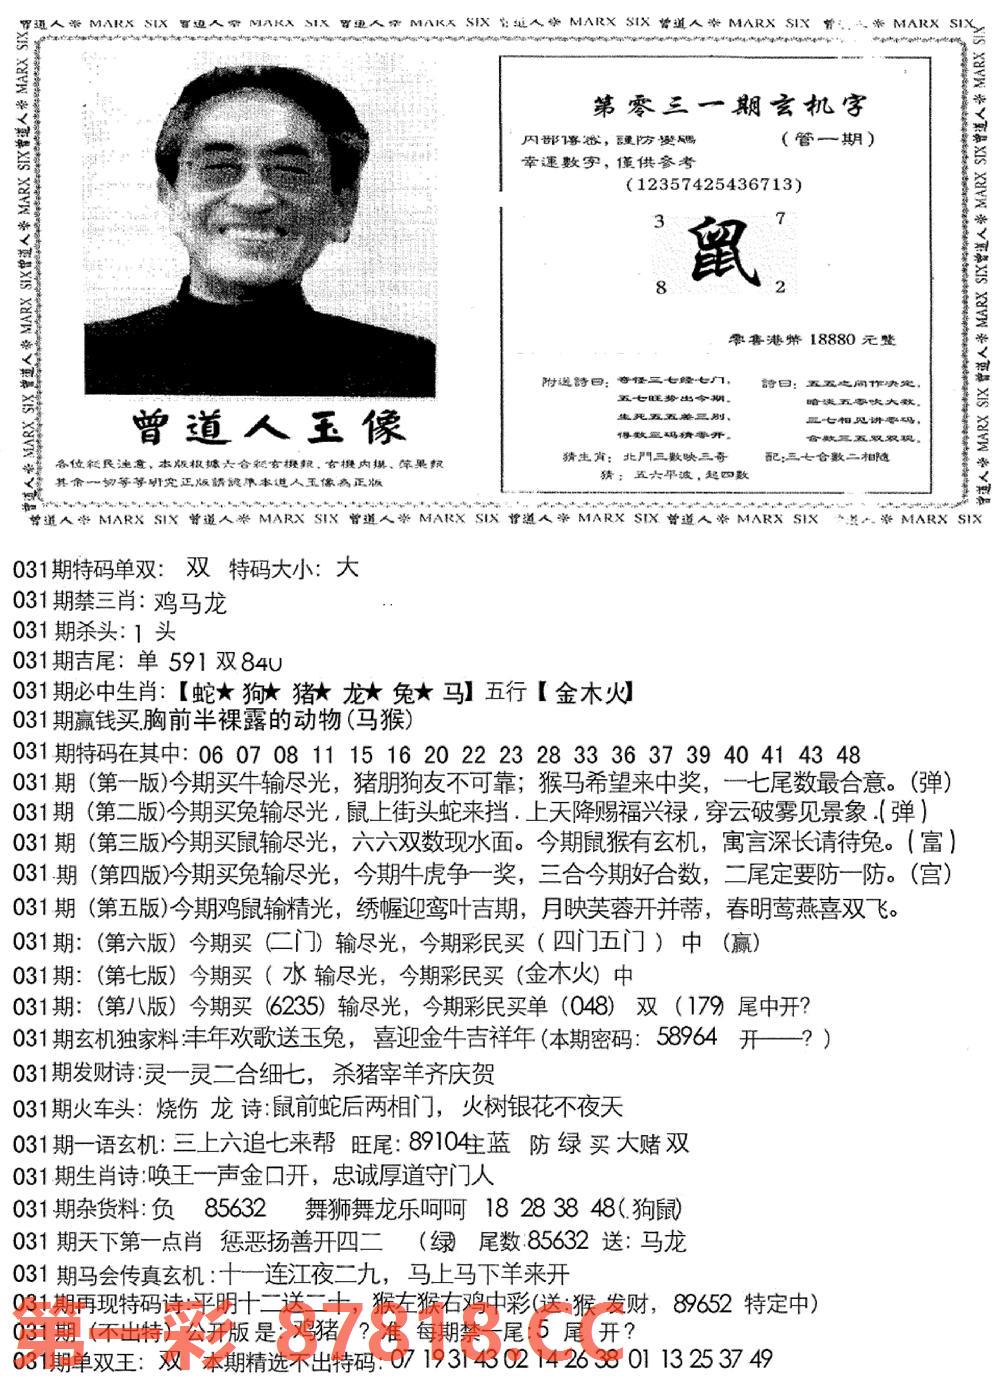 曾道人※ MARX SIX 曾道人※ MARX SIX 曾道人※ MARX SIX 曾道人※ MARX SIX 曾道人※ MARX SIX 曾道人※ MARX SIX
第零三一期玄机字
内部傳密，謹防變碼 （管一期）
幸運數字，僅供參考
(12357425436713)
3 7
鼠
8 2
零售港幣 18880 元整
曾道人玉像
各位彩民注意，本版根據六合彩玄機報、玄機内摸、苹果報
其余一切等等研究正版請認準本道人玉像為正版
附送詩曰：奇怪三七经七门，
五七旺势出今期。
生死五五差三别，
得数三码猜零开。
詩曰：五五之间作决定，
暗淡五零吹大数。
三七相见讲零码，
合数三五双双现。
猜生肖：北門三數映三奇 配:三七合數二相隨
猜：五六平波，起四數
曾道人※ MARX SIX 曾道人※ MARX SIX 曾道人※ MARX SIX 曾道人※ MARX SIX 曾道人※ MARX SIX 曾道人※ MARX SIX
031期特码单双： 双 特码大小： 大
031期禁三肖：鸡马龙
031期杀头：1 头
031期吉尾： 单 591 双840
031期必中生肖：【蛇★ 狗★ 猪★ 龙★ 兔★ 马】五行【 金木火】
031期赢钱买.胸前半裸露的动物(马猴)
031期特码在其中： 06 07 08 11 15 16 20 22 23 28 33 36 37 39 40 41 43 48
031期（第一版)今期买牛输尽光，猪朋狗友不可靠；猴马希望来中奖，一七尾数最合意。（弹）
031期（第二版)今期买兔输尽光,鼠上街头蛇来挡.上天降赐福兴禄,穿云破雾见景象.(弹)
031期（第三版)今期买鼠输尽光，六六双数现水面。今期鼠猴有玄机，寓言深长请待兔。(富)
031.期（第四版)今期买兔输尽光，今期牛虎争一奖，三合今期好合数，二尾定要防一防。（宫）
031期（第五版)今期鸡鼠输精光，绣幄迎鸾叶吉期，月映芙蓉开并蒂，春明莺燕喜双飞。
031期:（第六版）今期买（二门）输尽光，今期彩民买（ 四门五门 ） 中 （赢）
031期:（第七版）今期买（ 水 输尽光，今期彩民买（金木火）中
031期:（第八版）今期买（6235）输尽光，今期彩民买单（048） 双 （179）尾中开?
031期玄机独家料:丰年欢歌送玉兔，喜迎金牛吉祥年(本期密码： 58964 开——? )
031期发财诗:灵一灵二合细七，杀猪宰羊齐庆贺
031期火车头： 烧伤 龙 诗:鼠前蛇后两相门，火树银花不夜天
031期一语玄机: 三上六追七来帮 旺尾: 89104主蓝 防 绿 买 大赌 双
031期生肖诗:唤王一声金口开，忠诚厚道守门人
031期杂货料:负 85632 舞狮舞龙乐呵呵 18 28 38 48(.狗鼠)
031 期天下第一点肖 惩恶扬善开四二 （绿） 尾数:85632 送: 马龙
031 期马会传真玄机:十一连江夜二九，马上马下羊来开
031期再现特码诗:平明十二送二十，猴左猴右鸡中彩(送:猴 发财，89652 特定中)
031期（不出特）公开版 是: 鸡猪 ? 准 每期禁一尾:5 尾 开?
031期单双王： 双 本期精选不出特码: 07 19 31 43 02 14 26 38 01 13 25 37 49
第一彩 87818.CC